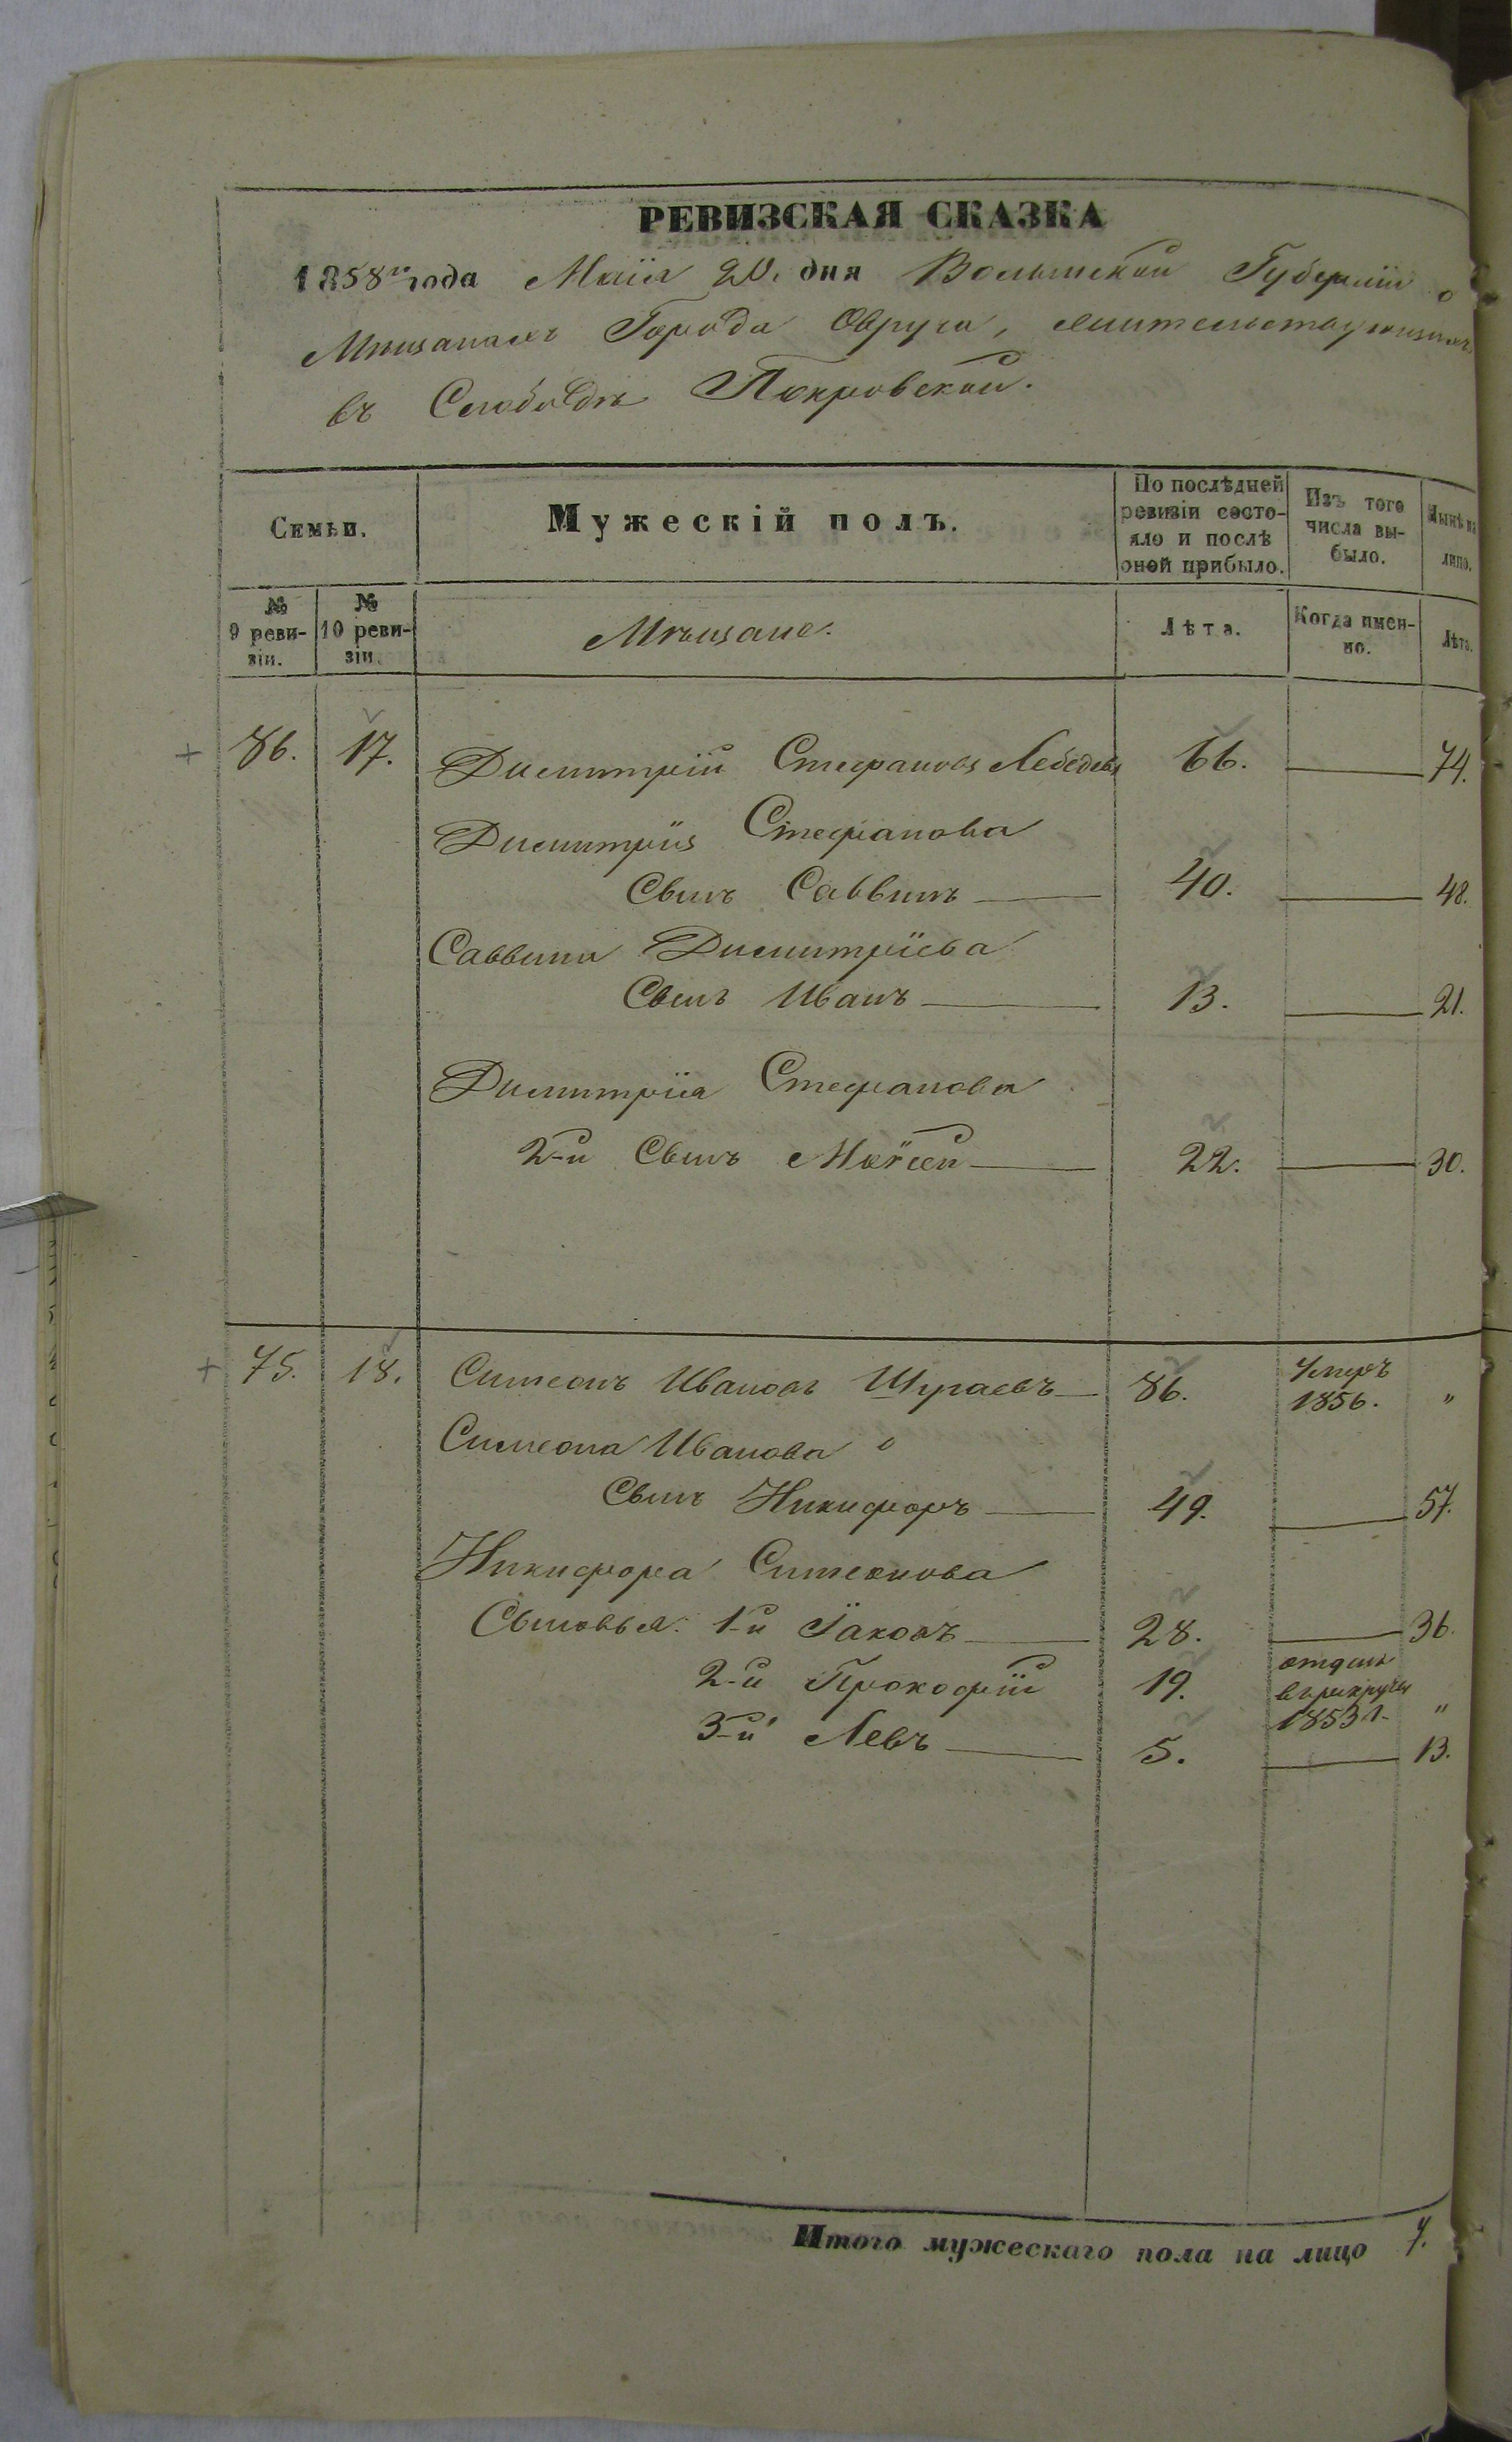 РЕВИЗСКАЯ СКАЗКА
1858го года Маія 20. дня Волынской Губерніи о
Мѣщанахъ Города Овруча, жительствующихъ
въ Слободѣ Покровской.
Семьи.
Мужескій полъ.
По послѣдней ревизіи состо-яло и послѣ оной прибыло.
Изъ того числа вы-было.
Нынѣ на лицо.
№ 9 реви-зіи.
№ 10 реви-зіи.
Мѣщане.
Лѣта.
Когда имен-но.
Лѣта.
86. 17. Димитрій Стефановъ Лебедевъ 66. 74.
Димитрія Стефанова
Сынъ Саввинъ 40. 48.
Саввина Димитріева
Сынъ Иванъ 13. 21.
Димитрія Стефанова
2-й Сынъ Моѵсей 22. 30.
75. 18. Симеонъ Ивановъ Шураевъ 86. Умеръ 1856. "
Симеона Иванова
Сынъ Никифоръ 49. 57.
Никифора Симеонова
Сыновья: 1-й Іаковъ 28. 36.
2-й Прокофій 19. отданъ в рекруты 1853 г. "
3-й Левъ 5. 13.
Итого мужескаго пола на лицо 7.